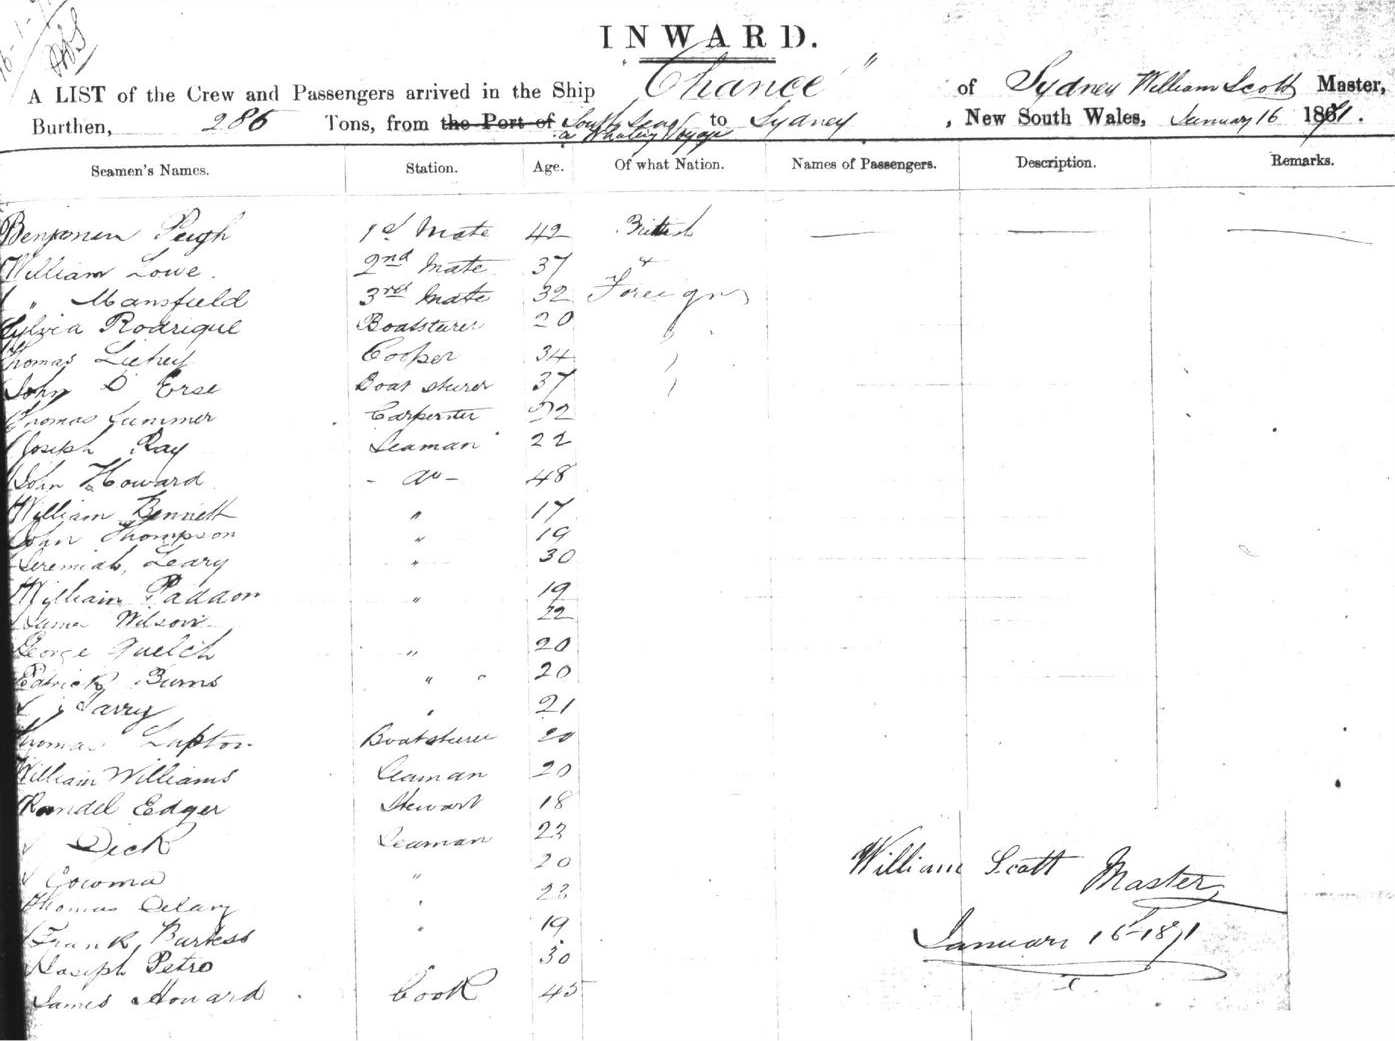 16-1-71
INWARD.
A LIST of the Crew and Passengers arrived in the Ship "Chance" of Sydney William Scott Master,
Burthen, 286 Tons, from the Port of South Seas to Sydney, New South Wales, January 16 1871.
a Whaling Voyage
Seamen's Names. Station. Age. Of what Nation. Names of Passengers. Description. Remarks.
Benjamin Peigh 1st Mate 42 British
William Lowe 2nd Mate 37 &
" Mansfield 3rd Mate 32 Foreign
Sylvia Rodrique Boatsturer 20 "
Thomas Liehey Cooper 34 "
John D Erse Boat sturer 37 "
Thomas Summer Carpenter 22
Joseph Ray Seaman 22
John Howard - do - 48
William Bennett " 17
John Thompson " 19
Jeremiah Leary " 30
William Paddon " 19
James Wilson 22
George Quelch " 20
Patrick Burns " " 20
Tarry " 21
Thomas Lupton Boatsturer 20
William Williams Seaman 20
Randel Edger Stewart 18
Dick Seaman 23
Gowma " 20
Thomas Delany " 23
Frank Burkess " 19
Joseph Petro 30
James Howard Cook 45
William Scott Master
January 16th 1871